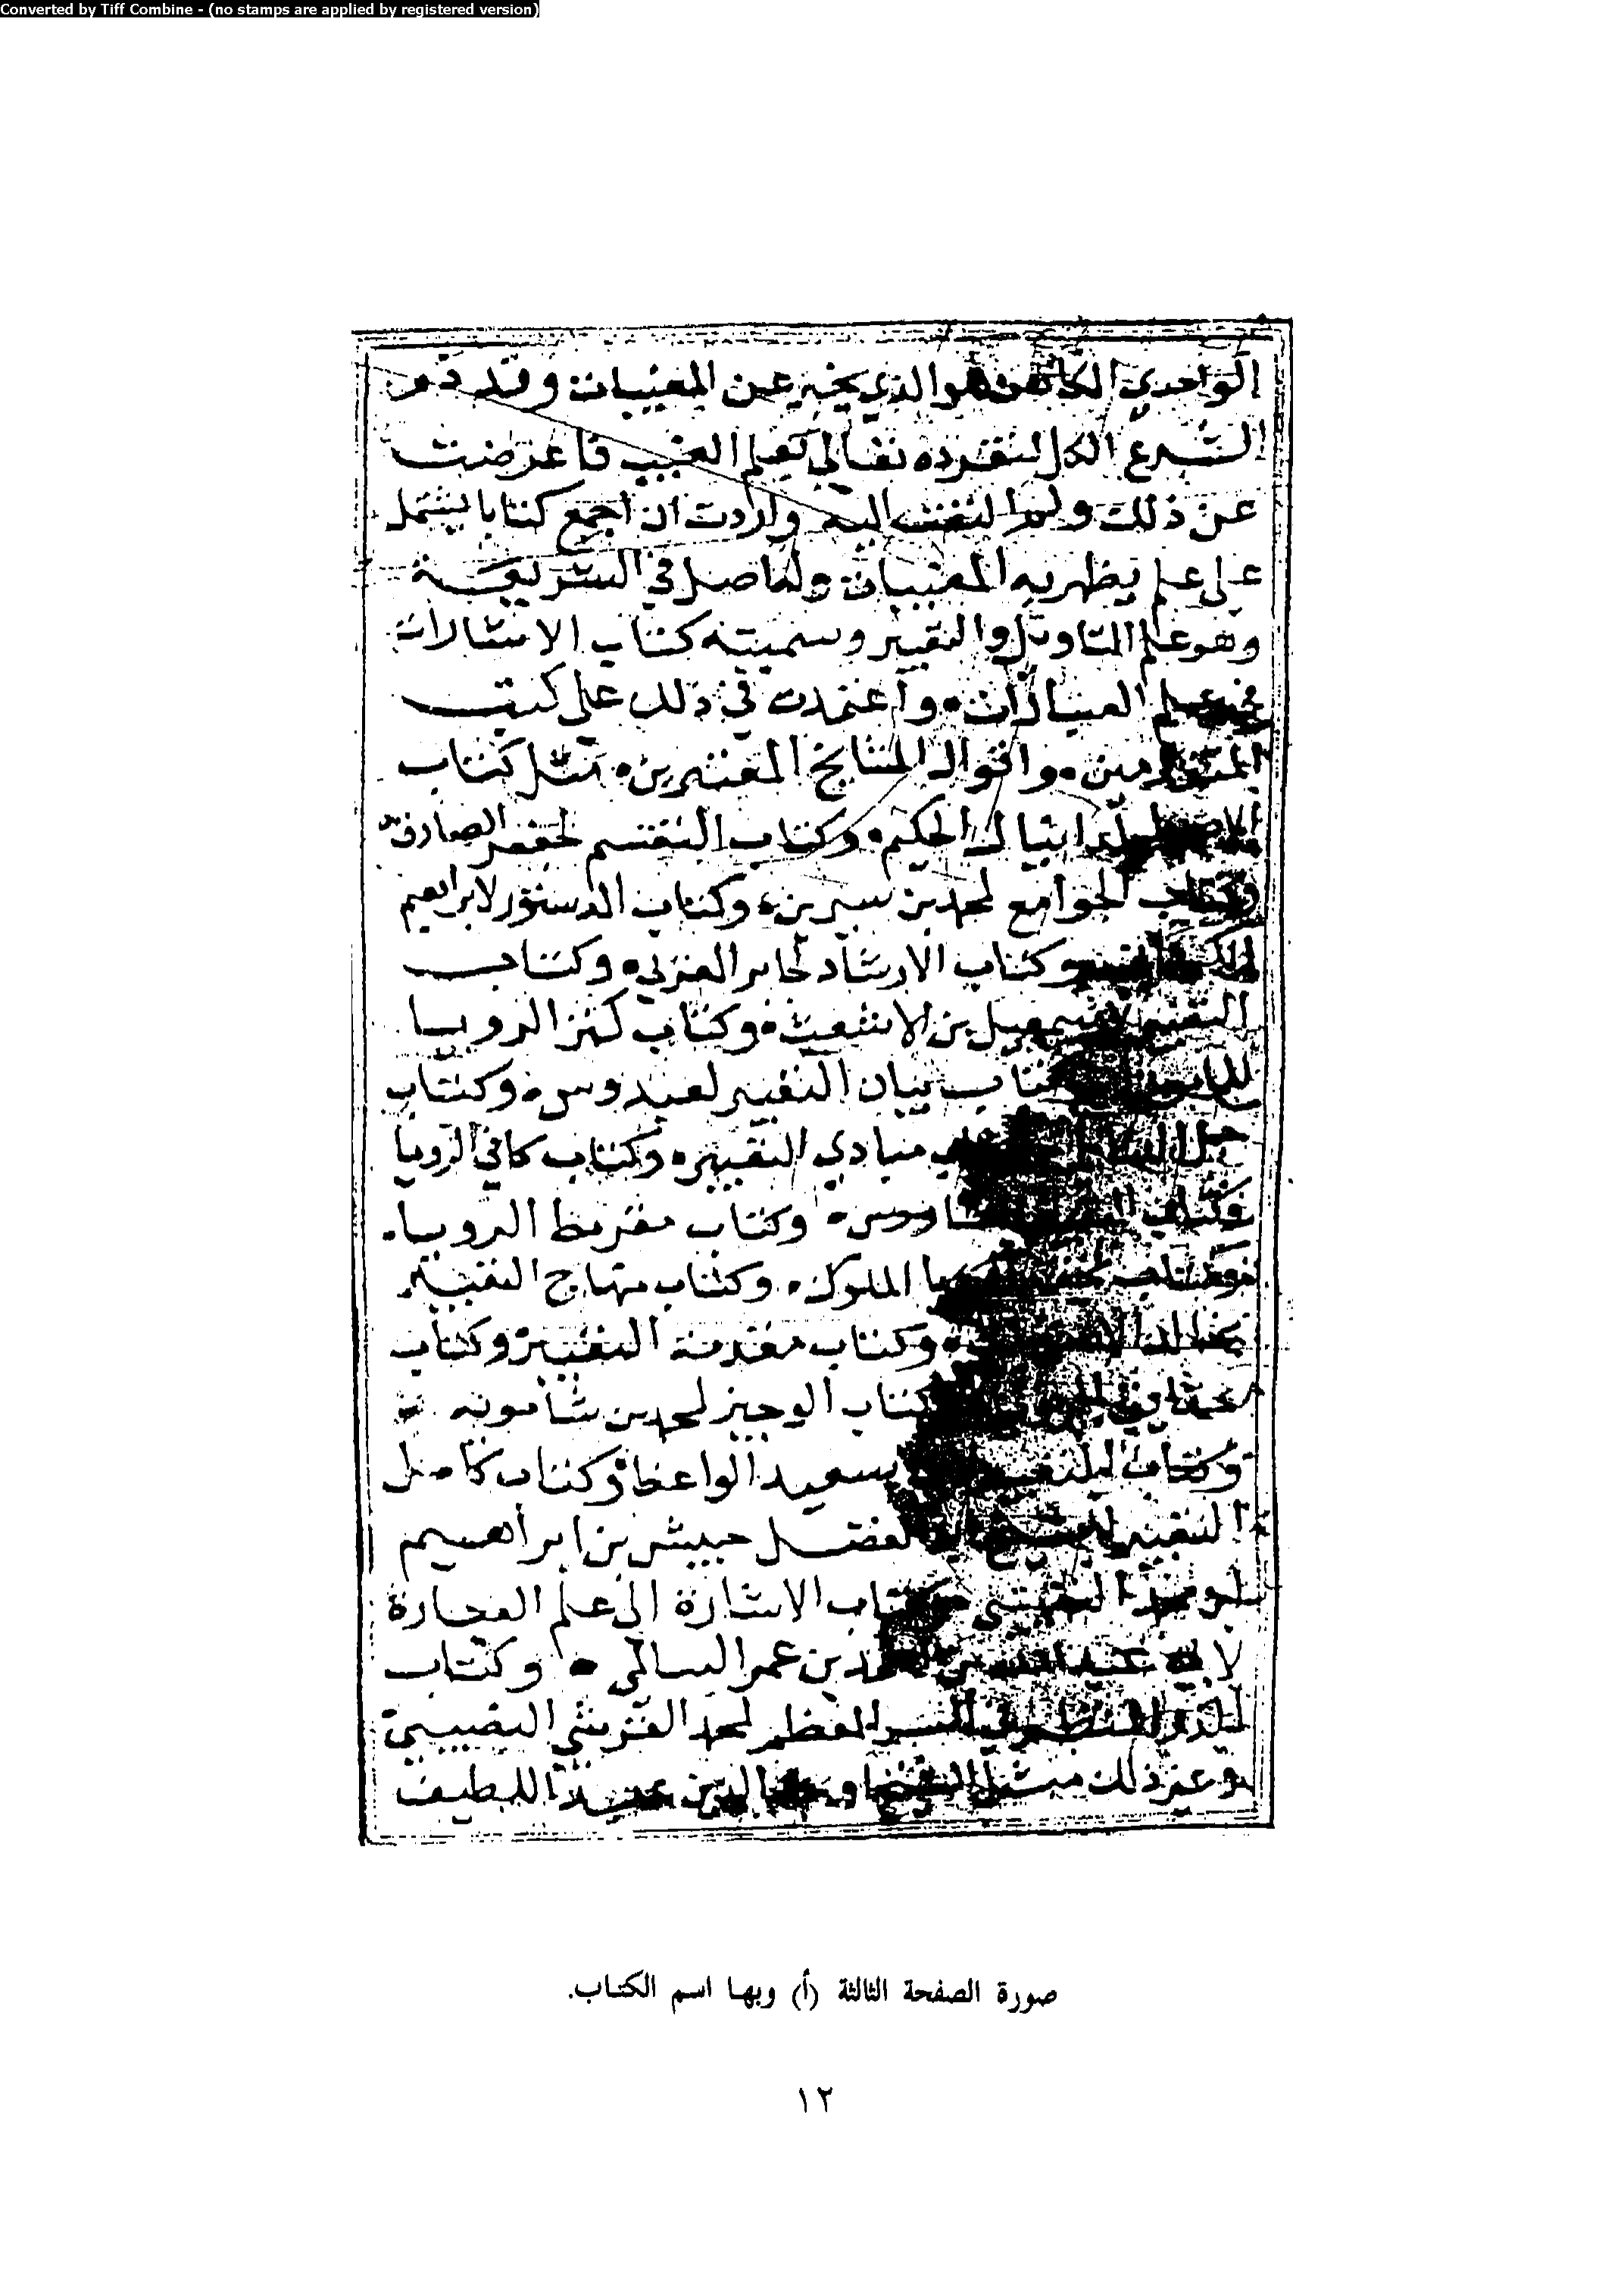 Converted by Tiff Combine - (no stamps are applied by registered version)
الواحدي الكاهن هو الذي يخبر عن المغيبات وقد ذم
الشرع الكل لتفرده تعالى بعلم الغيب فاعرضت
عن ذلك ولم التفت اليه واردت ان اجمع كتابا يشتمل
على علم يظهر به المغيبات وله اصل في الشريعة
وهو علم التاويل والتعبير وسميته كتاب الاشارات
في علم العبارات واعتمدت في ذلك على كتب
المتقدمين واقوال المشايخ المعتبرين مثل كتاب
الاصول لدانيال الحكيم وكتاب التقسيم لجعفر الصادق
وكتاب الجوامع لمحمد بن سيرين وكتاب الدستور لابراهيم
الكرماني وكتاب الارشاد لجابر المغربي وكتاب
التعبير لاسمعيل بن الاشعث وكتاب كنز الرويا
كتاب بيان التعبير لعبدوس وكتاب
مبادي التعبير وكتاب كافي الرويا
وكتاب وكتاب مقرمط الرويا
وكتاب الملوك وكتاب منهاج التعبير
وكتاب مقدمة التعبير وكتاب
كتاب الوجيز لمحمد بن شامويه
وكتاب التعبير سعيد الواعظ وكتاب كامل
التعبير للشيخ الفضل حبيش بن ابراهيم
وكتاب الاشارة الى علم العبارة
لابي عبد الله محمد بن عمر السالمي وكتاب
الدر المنظم في السر المعظم لمحمد القرشي النصيبي
وغير ذلك مثل عبد اللطيف
صورة الصفحة الثالثة (أ) وبها اسم الكتاب.
١٢